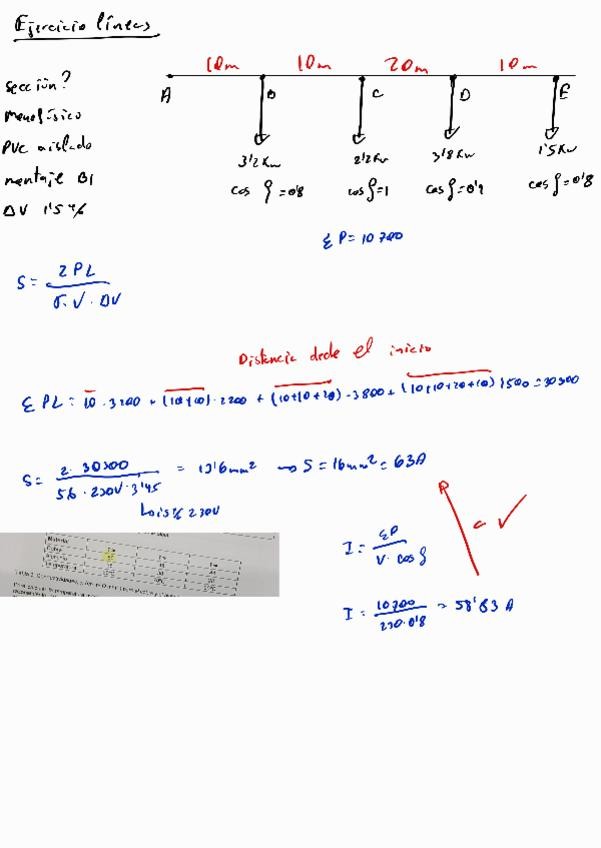 Ejercicio líneas
10m 10m 20m 10m
A B C D E
sección?
monofásico
PVC aislado
montaje B1
ΔV 1'5 %
3'2 Kw 2'2 Kw 3'8 Kw 1'5 Kw
cos φ = 0'8 cos φ = 1 cos φ = 0'9 cos φ = 0'8
ΣP = 10700
S = 2PL / σ · V · ΔV
Distancia desde el inicio
ΣPL = 10 · 3200 + (10+10) · 2200 + (10+10+20) · 3800 + (10+10+20+10) 1500 = 30300
S = 2 · 30300 / 56 · 230V · 3'45 = 13'6 mm² → S = 16 mm² = 63A
↳ 1'5 % 230V
I = ΣP / V · cos φ
I = 10700 / 230 · 0'8 = 58'63 A